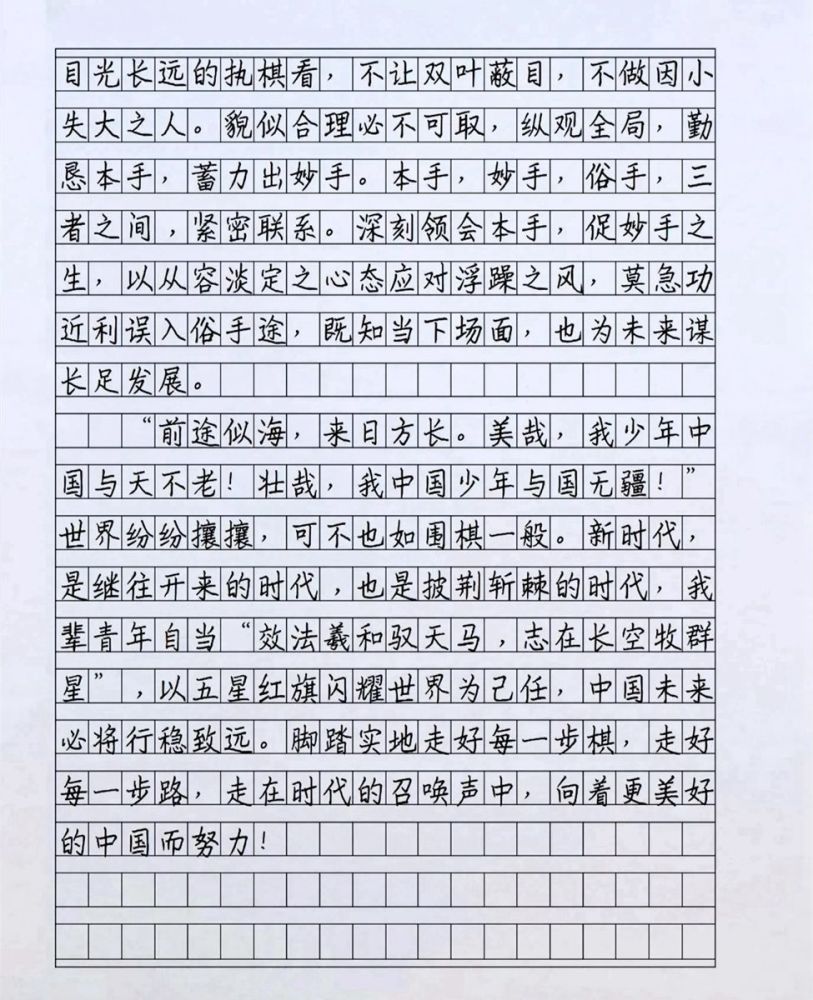 目光长远的执棋看，不让双叶蔽目，不做因小
失大之人。貌似合理必不可取，纵观全局，勤
恳本手，蓄力出妙手。本手，妙手，俗手，三
者之间，紧密联系。深刻领会本手，促妙手之
生，以从容淡定之心态应对浮躁之风，莫急功
近利误入俗手途，既知当下场面，也为未来谋
长足发展。
“前途似海，来日方长。美哉，我少年中
国与天不老！壮哉，我中国少年与国无疆！”
世界纷纷攘攘，可不也如围棋一般。新时代，
是继往开来的时代，也是披荆斩棘的时代，我
辈青年自当“效法羲和驭天马，志在长空牧群
星”，以五星红旗闪耀世界为己任，中国未来
必将行稳致远。脚踏实地走好每一步棋，走好
每一步路，走在时代的召唤声中，向着更美好
的中国而努力！